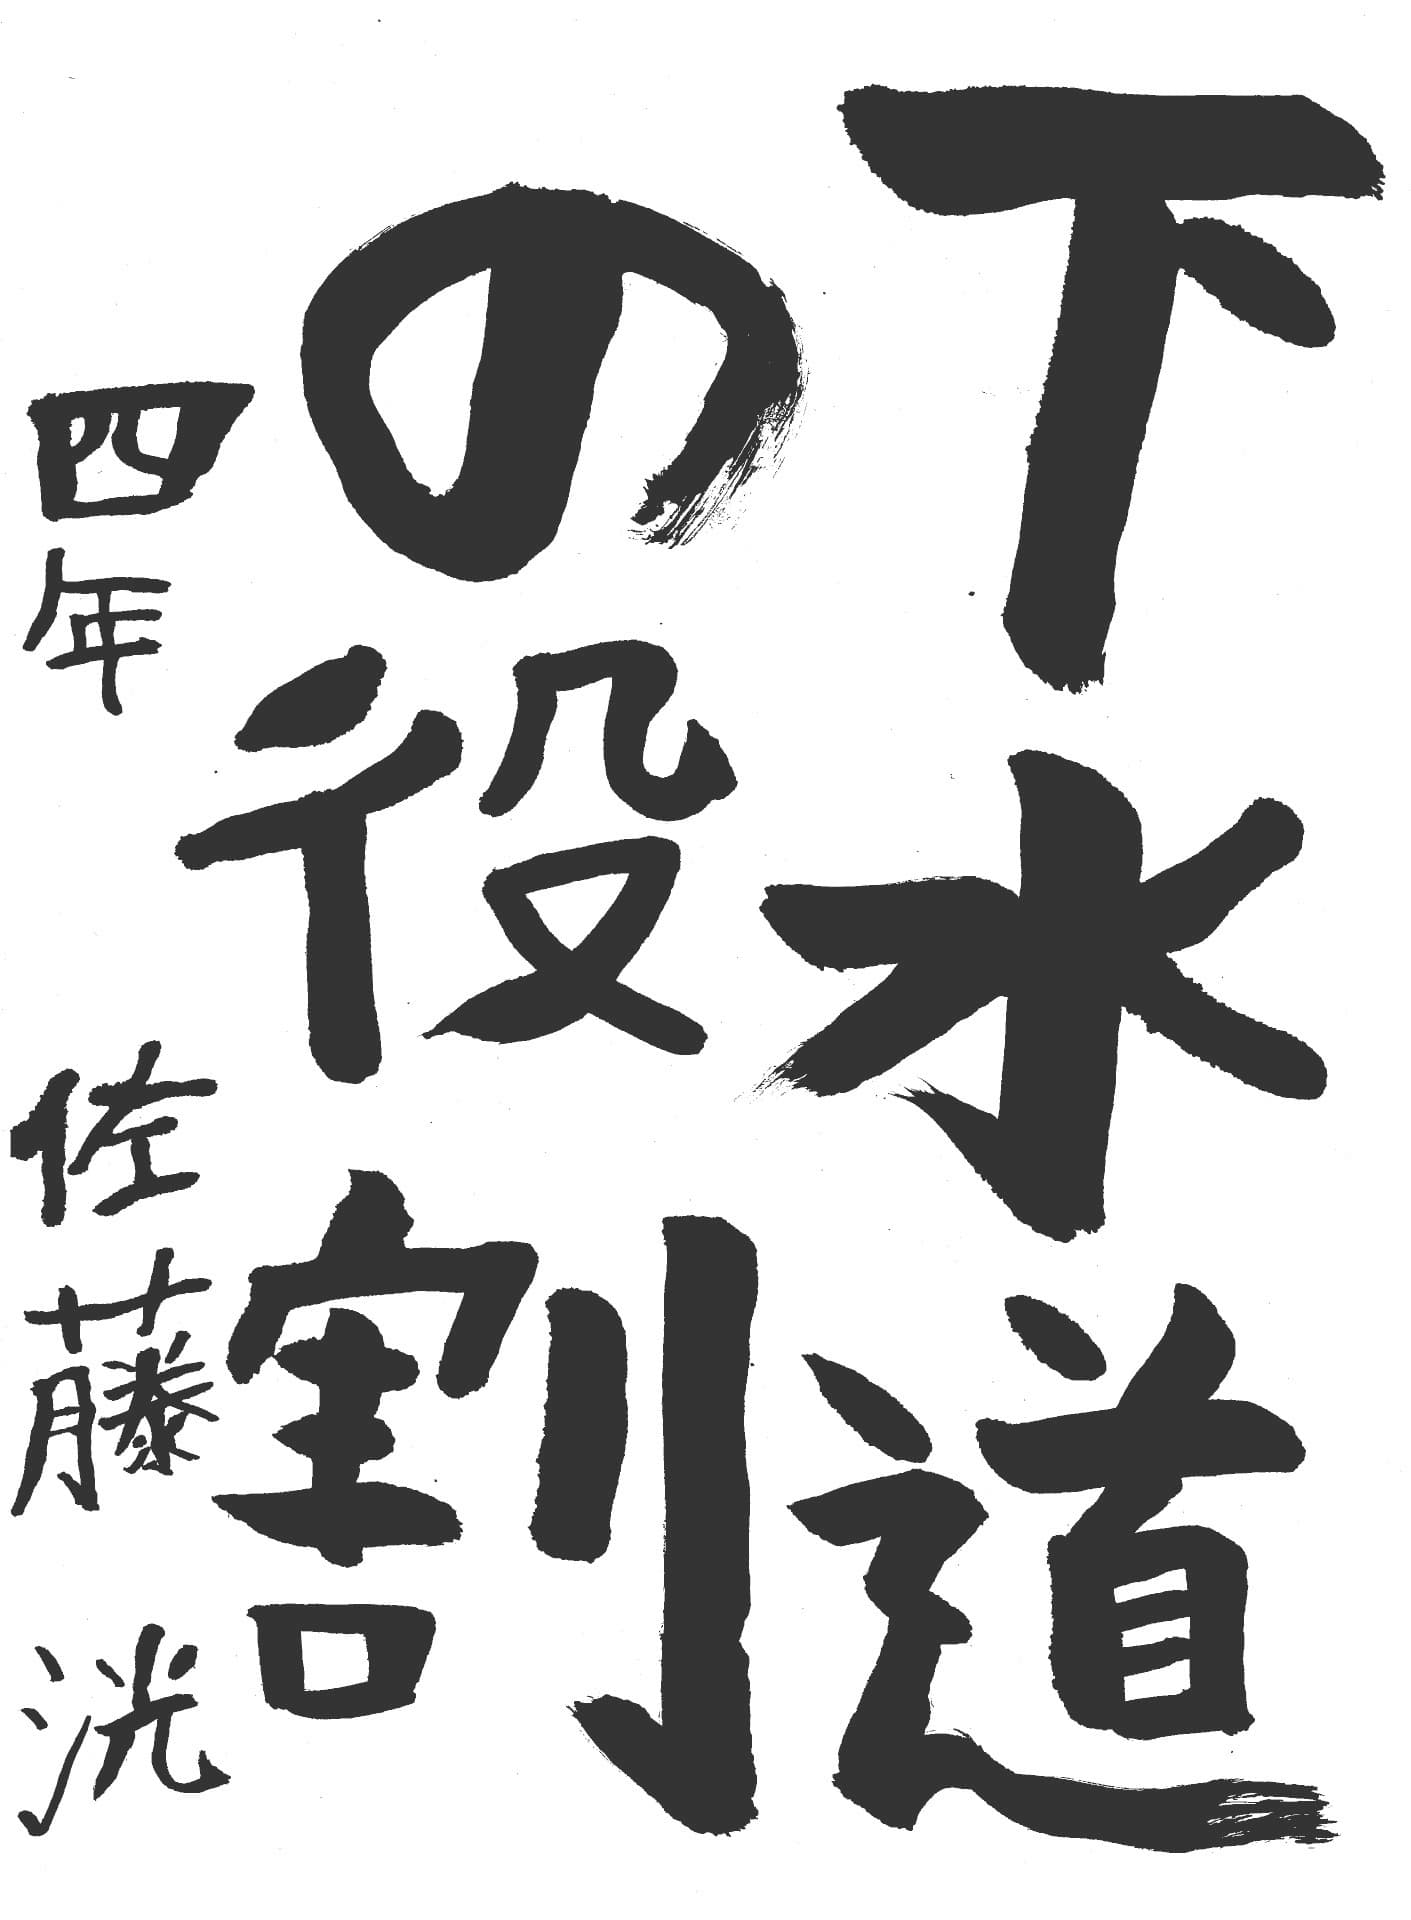 下水道
の役割
四年 佐藤洸